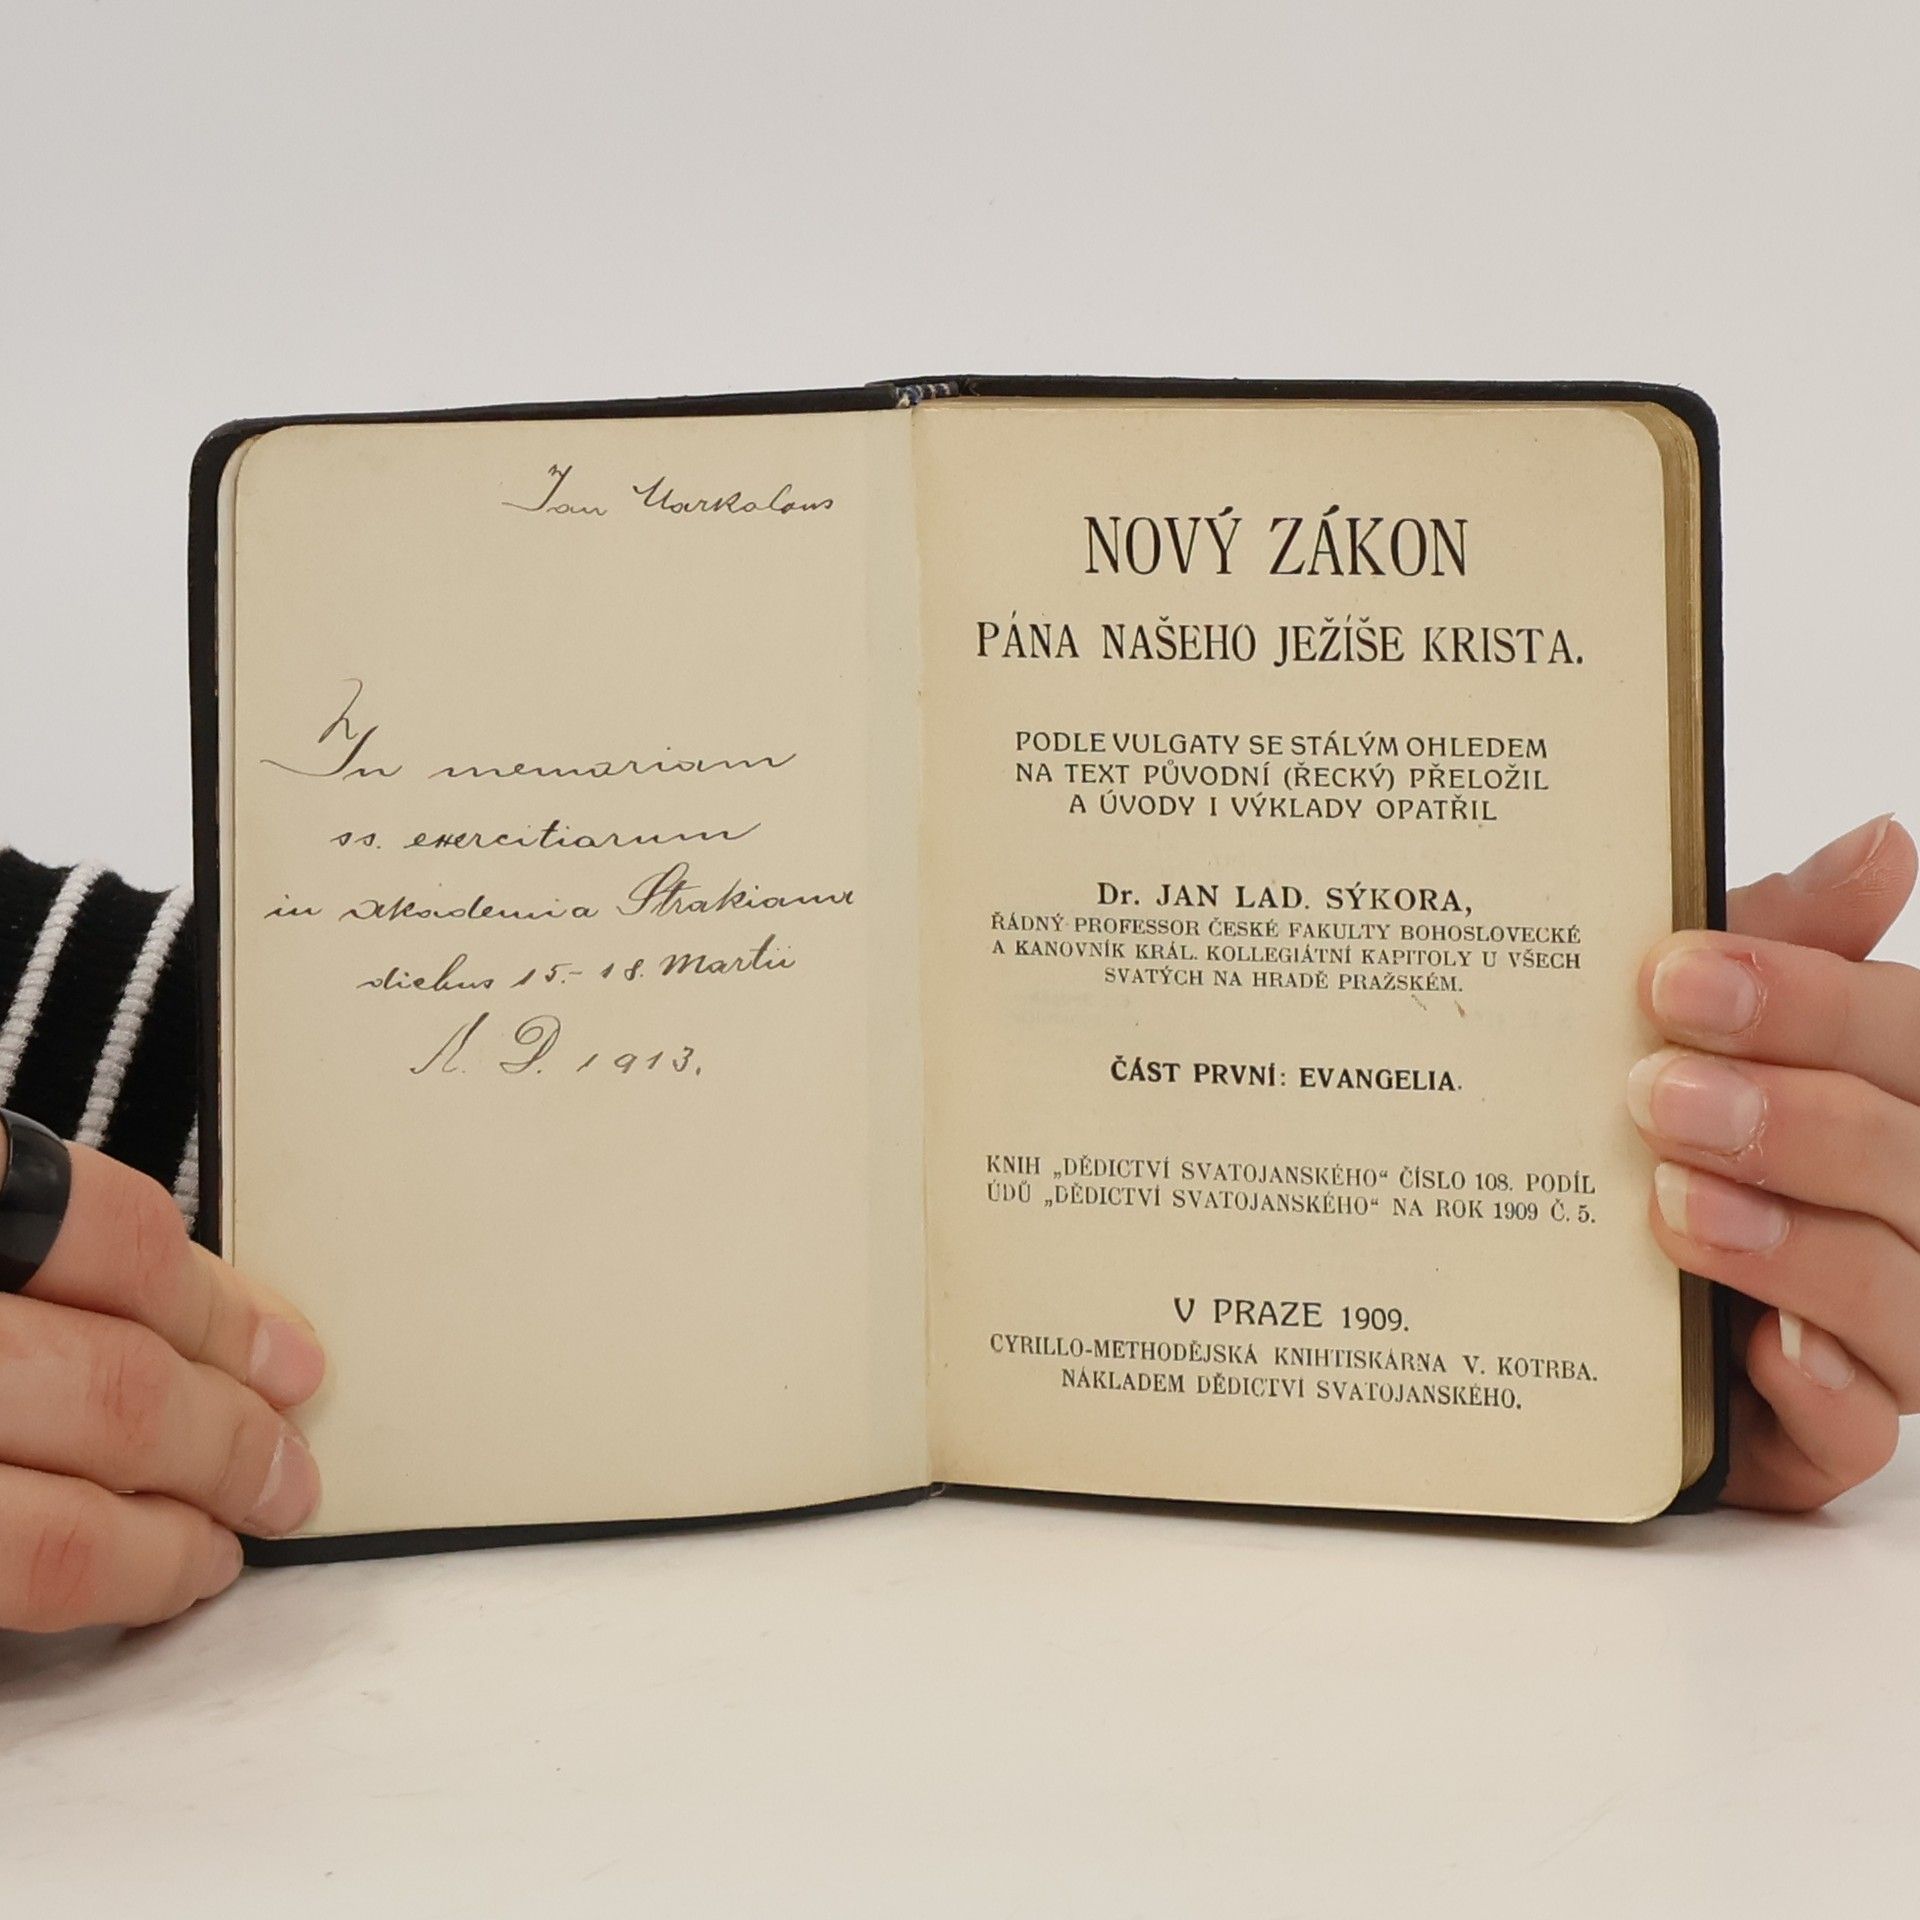 Jan Markalous
In memoriam
ss. exercitiarum
in akademia Strakiana
diebus 15.-18. Martii
A. D. 1913.
NOVÝ ZÁKON
PÁNA NAŠEHO JEŽÍŠE KRISTA.
PODLE VULGATY SE STÁLÝM OHLEDEM
NA TEXT PŮVODNÍ (ŘECKÝ) PŘELOŽIL
A ÚVODY I VÝKLADY OPATŘIL
Dr. JAN LAD. SÝKORA,
ŘÁDNÝ PROFESSOR ČESKÉ FAKULTY BOHOSLOVECKÉ
A KANOVNÍK KRÁL. KOLLEGIÁTNÍ KAPITOLY U VŠECH
SVATÝCH NA HRADĚ PRAŽSKÉM.
ČÁST PRVNÍ: EVANGELIA.
KNIH „DĚDICTVÍ SVATOJANSKÉHO“ ČÍSLO 108. PODÍL
ÚDŮ „DĚDICTVÍ SVATOJANSKÉHO“ NA ROK 1909 Č. 5.
V PRAZE 1909.
CYRILLO-METHODĚJSKÁ KNIHTISKÁRNA V. KOTRBA.
NÁKLADEM DĚDICTVÍ SVATOJANSKÉHO.